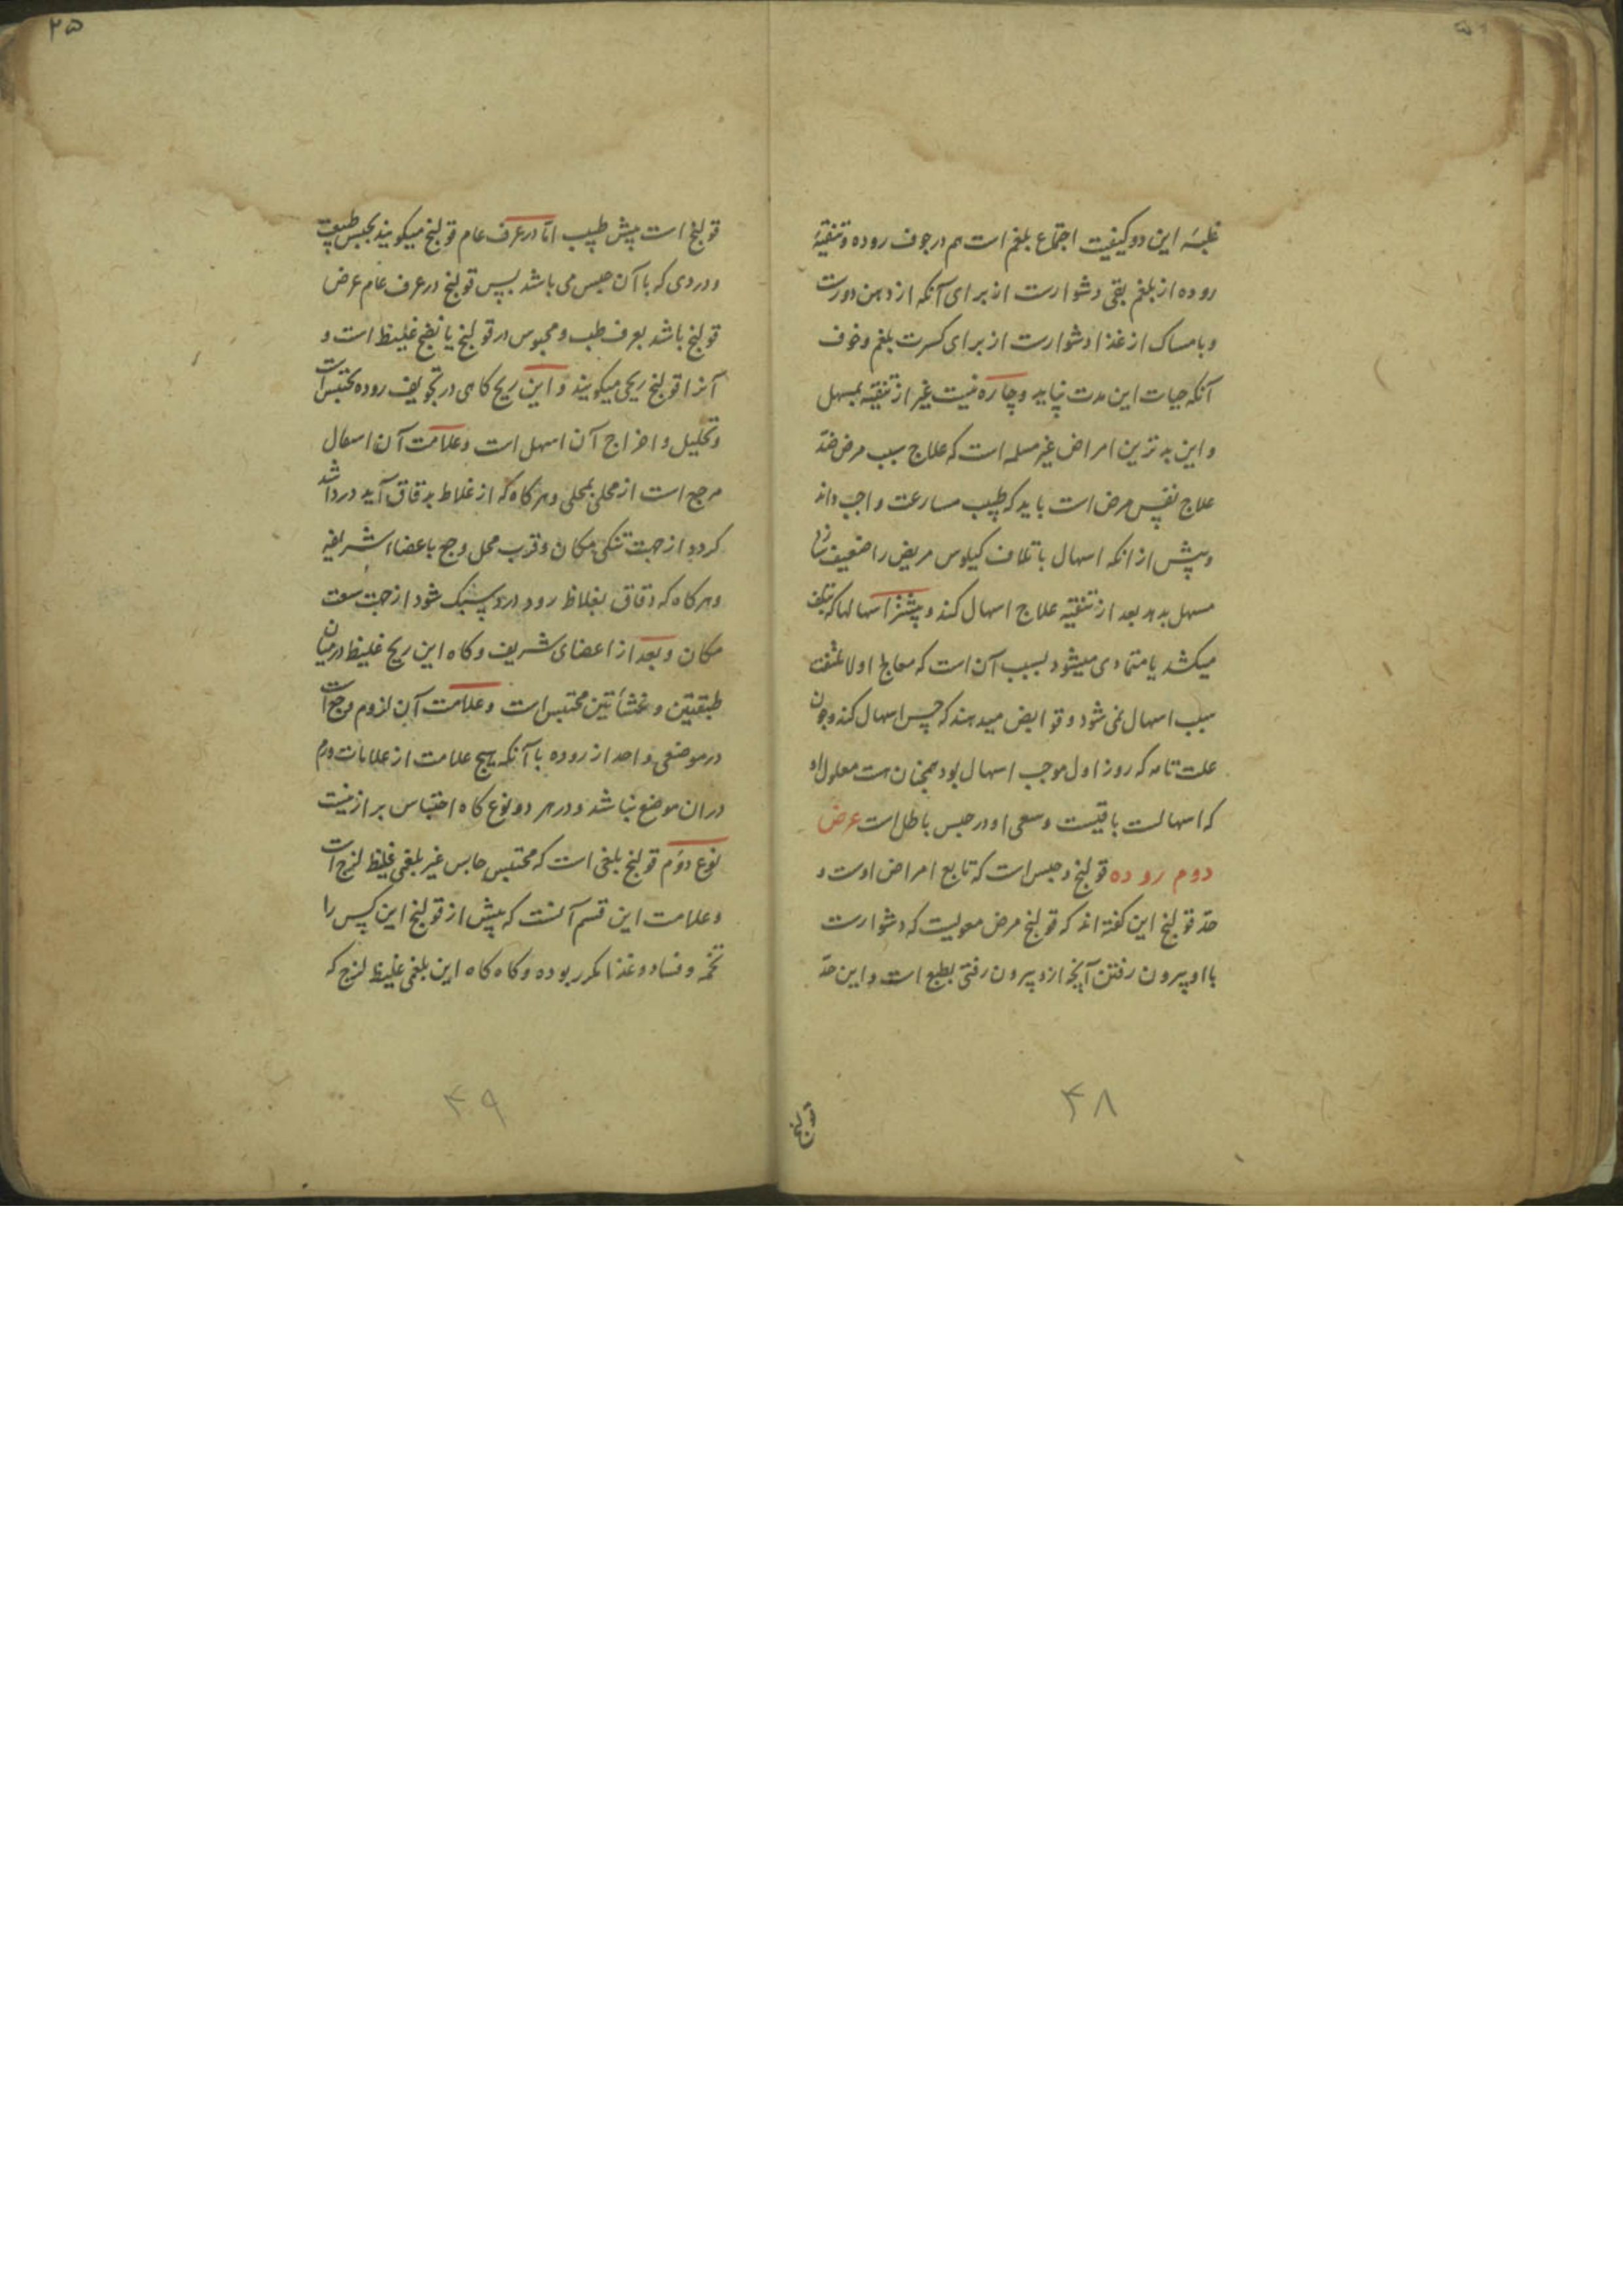 غلبهٔ این دو کیفیت اجتماع بلغم است هم در جوف روده و تنقیهٔ
روده از بلغم بقی دشوارست از برای آنکه از دهن دورست
و بامساک از غذا دشوارست از برای کسرت بلغم و خوف
آنکه حیات این مدت نپاید و چاره نیست غیر از تنقیه بمسهل
و این بدترین امراض غیر مسلمه است که علاج سبب مرض ضدّ
علاج نفس مرض است باید که طبیب مسارعت واجب داند
و پیش از انکه اسهال باتلاف کیلوس مریض را ضعیف سازد
مسهل بدهد بعد از تنقیه علاج اسهال کند و بیشتر اسهالها که
میکشد یا متمادی میشود بسبب آن است که معالج اولا ملتفت
سبب اسهال نمی شود و قوابض میدهند که حبس اسهال کند و چون
علت تامه که روز اول موجب اسهال بود همچنان هست معلول او
که اسهالست باقیست و سعی او در حبس باطل است عرض
دوم روده قولنج و حبس است که تابع امراض اوست و
حدّ قولنج این گفته اند که قولنج مرض معویست که دشوارست
با او بیرون رفتن آنچه ازو بیرون رفتی بطبع است و این حدّ
قولنج
۴۸
۲۵
قولنج است پیش طبیب امّا در عرف عام قولنج میکویند بحبس طبیعت
و دردی که با آن حبس می باشد پس قولنج در عرف عام عرض
قولنج باشد بعرف طب و محبوس در قولنج یا نفخ غلیظ است و
آنرا قولنج ریحی میکویند و این ریح کاهی در تجویف روده محتبس است
و تحلیل و اخراج آن اسهل است و علامت آن
از محلی بمحلی و هر کاه که از غلاظ بدقاق آید درد اشد
کردد از جهت تنکی مکان و قرب محل وجع باعضاء شریفه
و هر کاه که دقاق بغلاظ رود درد سبک شود از جهت سعت
مکان و بعد از اعضای شریف و کاه این ریح غلیظ در میان
طبقتین و غشأتین محتبس است و علامت آن لزوم وجع است
در موضعی واحد از روده با آنکه هیچ علامت از علامات ورم
دران موضع نباشد و در هر دو نوع کاه احتباس براز نیست
نوع دوّم قولنج بلغمی است که محتبس حابس غیر بلغمی غلیظ لزج است
و علامت این قسم آنست که پیش از قولنج این کس را
تخمه و فساد و غذا مکرر بوده و کاه کاه این بلغمی غلیظ لزج که
۴۹